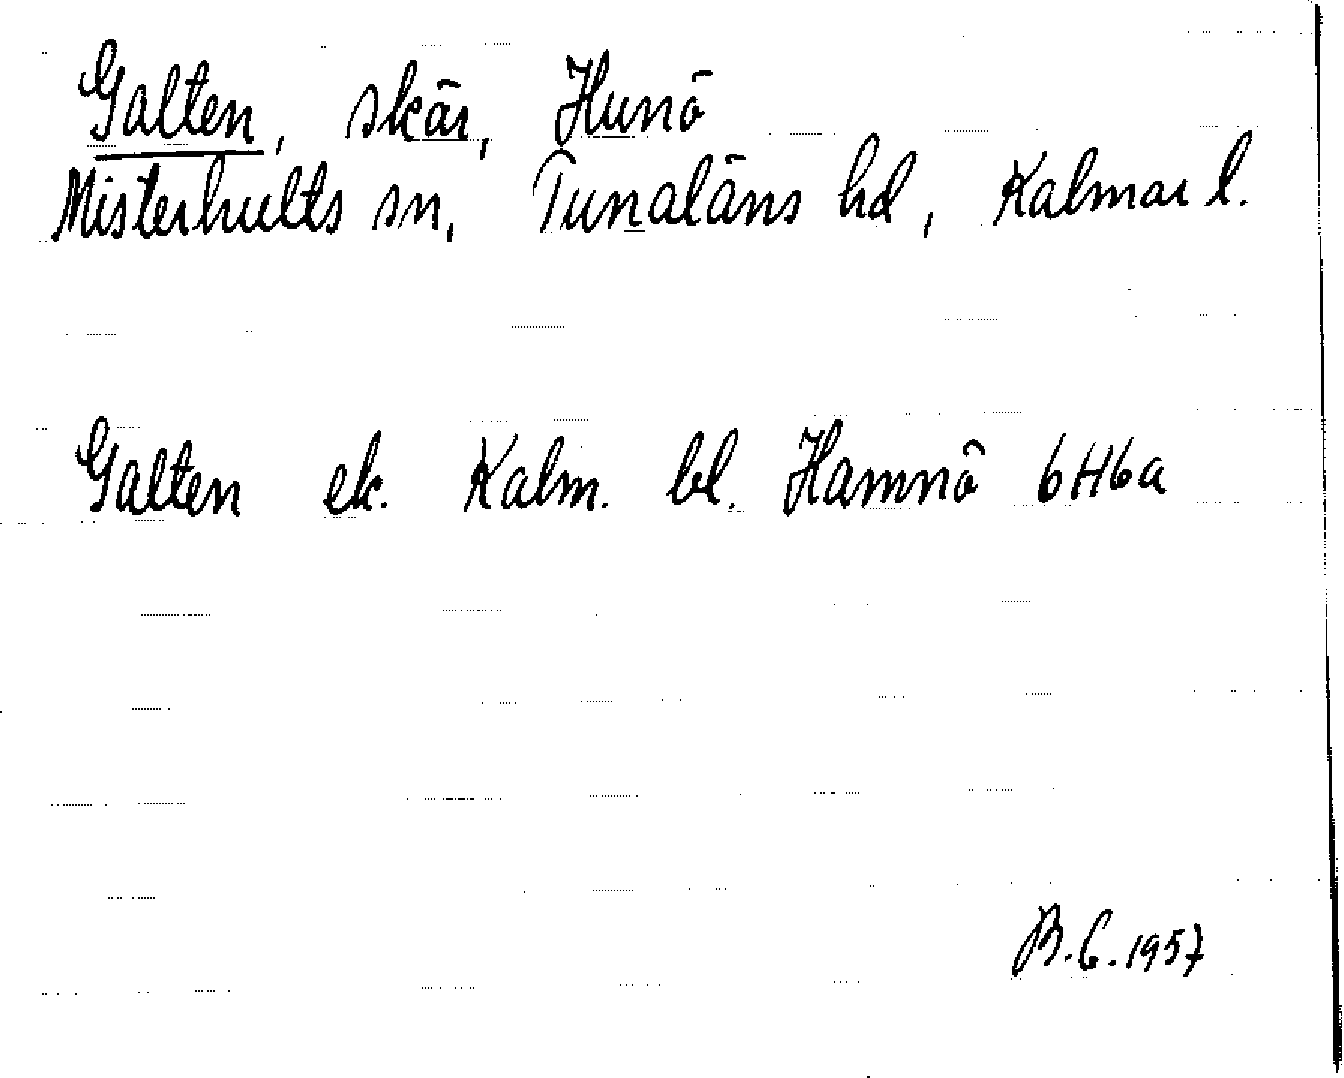 Galten, skär, Hunö
Misterhults sn, Tunaläns hd, Kalmar l.
Galten ek. Kalm. bl. Hamnö 6H6a
B.C. 1957